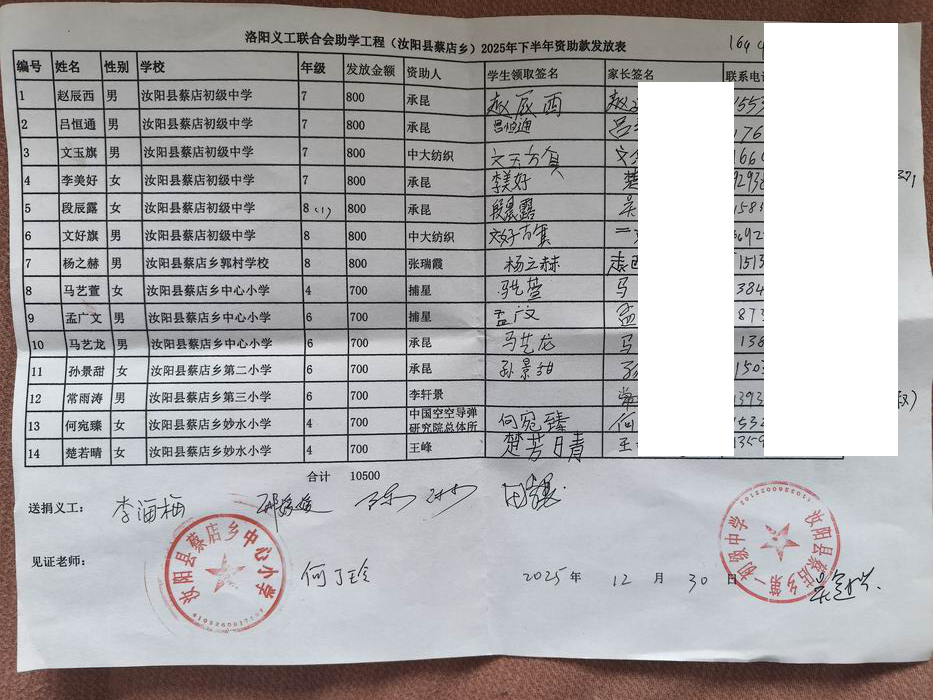 洛阳义工联合会助学工程（汝阳县蔡店乡）2025年下半年资助款发放表
编号 姓名 性别 学校 年级 发放金额 资助人 学生领取签名 家长签名 联系电话
1 赵辰西 男 汝阳县蔡店初级中学 7 800 承昆 赵辰西
2 吕恒通 男 汝阳县蔡店初级中学 7 800 承昆 吕恒通
3 文玉旗 男 汝阳县蔡店初级中学 7 800 中大纺织
4 李美好 女 汝阳县蔡店初级中学 7 800 承昆 李美好
5 段辰露 女 汝阳县蔡店初级中学 8（1） 800 承昆 段晨露
6 文好旗 男 汝阳县蔡店初级中学 8 800 中大纺织
7 杨之赫 男 汝阳县蔡店乡郭村学校 8 800 张瑞霞 杨之赫
8 马艺萱 女 汝阳县蔡店乡中心小学 4 700 捕星 马艺萱 马
9 孟广文 男 汝阳县蔡店乡中心小学 6 700 捕星 孟广文 孟
10 马艺龙 男 汝阳县蔡店乡中心小学 6 700 承昆 马艺龙 马
11 孙景甜 女 汝阳县蔡店乡第二小学 6 700 承昆 孙景甜
12 常雨涛 男 汝阳县蔡店乡第三小学 6 700 李轩景
13 何宛臻 女 汝阳县蔡店乡妙水小学 4 700 中国空空导弹研究院总体所 何宛臻 何
14 楚若晴 女 汝阳县蔡店乡妙水小学 4 700 王峰 楚若晴 王
合计 10500
送捐义工：
见证老师：
汝阳县蔡店乡中心小学
2025年 12 月 30 日
汝阳县蔡店乡第一初级中学